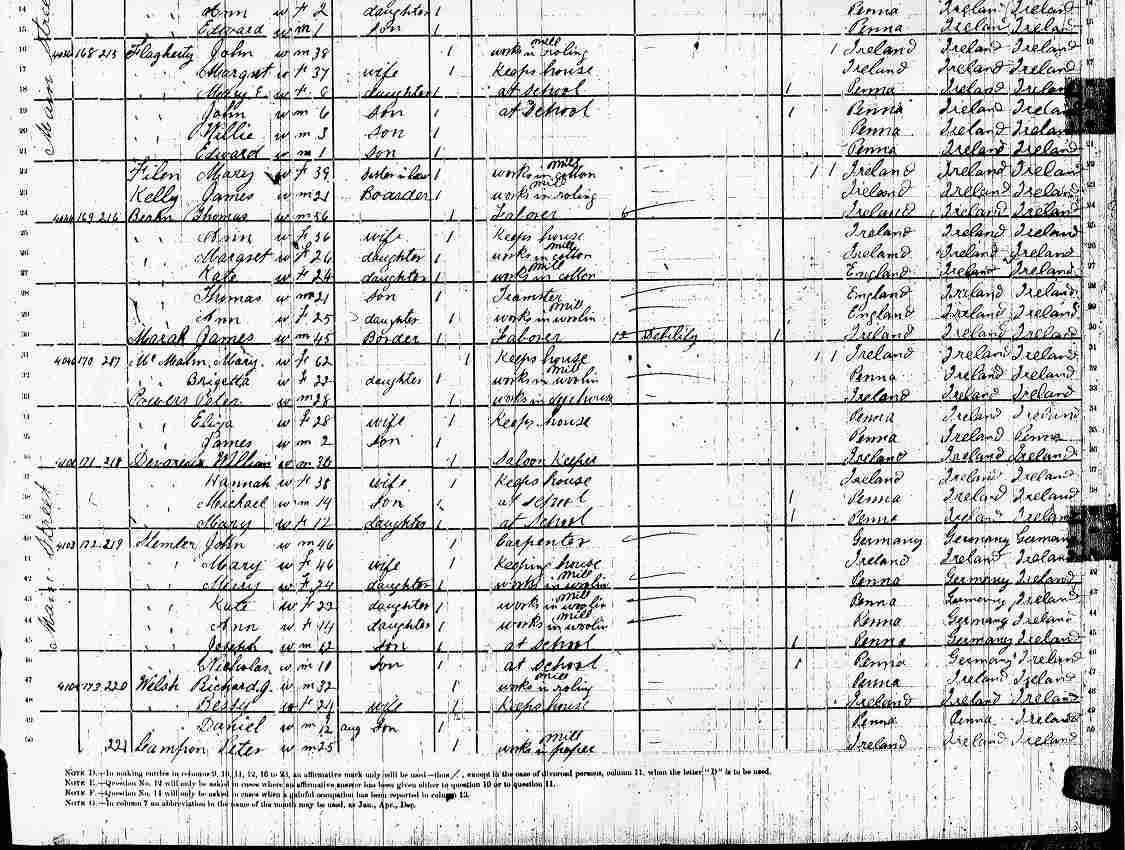 14 Ann w f 2 daughter 1 Penna Ireland Ireland
15 Edward w m 1 son 1 Penna Ireland Ireland
16 168 213 Flagherty John w m 38 1 works in roling mill 1 Ireland Ireland Ireland
17 " " Margret w f 37 wife 1 Keeps house Ireland Ireland Ireland
18 " " Mary E. w f 8 daughter 1 at school 1 Penna Ireland Ireland
19 " " John w m 6 son 1 at School 1 Penna Ireland Ireland
20 " " Willie w m 3 son 1 Penna Ireland Ireland
21 Edward w m 1 son 1 Penna Ireland Ireland
22 Filon Mary w f 39 sister in law 1 works in cotton mill 1 1 Ireland Ireland Ireland
23 Kelly James w m 21 Boarder 1 works in roling mill Ireland Ireland Ireland
24 169 216 Thomas w m 56 1 Labover 6 Ireland Ireland Ireland
25 " " Ann w f 56 wife 1 Keeps house Ireland Ireland Ireland
26 " " Margret w f 26 daughter 1 works in cotton mill Ireland Ireland Ireland
27 Kate w f 24 daughter 1 works in cotton mill England Ireland Ireland
28 " " Thomas w m 21 son 1 Teamster England Ireland Ireland
29 " " Ann w f 25 daughter 1 works in woolin mill England Ireland Ireland
30 James w m 45 Border 1 Labover 12 Debility 1 Ireland Ireland Ireland
31 4046 170 217 Mc Mahn, Mary w f 62 1 Keeps house 1 1 Ireland Ireland Ireland
32 " " Brigetta w f 22 daughter 1 works in woolin mill Penna Ireland Ireland
33 Powers Peter w m 28 1 works in dye house Ireland Ireland Ireland
34 " " Eliza w f 28 wife 1 Keeps house Penna Ireland Ireland
35 " " James w m 2 son 1 Penna Ireland Penna
36 171 218 Devareaux William w m 36 1 Saloon Keeper Ireland Ireland Ireland
37 Hannah w f 38 wife 1 Keeps house Ireland Ireland Ireland
38 " " Michael w m 14 son at school 1 Penna Ireland Ireland
39 " " Mary w f 12 daughter 1 at School 1 Penna Ireland Ireland
40 4103 172 219 Stemler John w m 46 1 Carpenter Germany Germany Germany
41 " " Mary w f 46 wife 1 Keeping house Ireland Ireland Ireland
42 " " Mary w f 24 daughter 1 works in woolin mill Penna Germany Ireland
43 " " Kate w f 22 daughter 1 works in woolin mill Penna Germany Ireland
44 " " Ann w f 14 daughter 1 works in woolin mill Penna Germany Ireland
45 " " Joseph w m 12 son 1 at school 1 Penna Germany Ireland
46 Nicholas w m 10 son 1 at school 1 Penna Germany Ireland
47 4104 173 220 Welsh Richard J. w m 32 1 works in roling mill Penna Ireland Ireland
48 " " Bessy w f 24 wife 1 Keeps house Ireland Ireland Ireland
49 Daniel w m /12 aug son 1 Penna Penna Ireland
50 221 Peter w m 25 1 works in paper mill Ireland Ireland Ireland
Main Street
Main Street
NOTE D.—In making entries in columns 9, 10, 11, 12, 16 to 23, an affirmative mark only will be used—thus /, except in the case of divorced persons, column 11, when the letter "D" is to be used.
NOTE E.—Question No. 12 will only be asked in cases where an affirmative answer has been given either to question 10 or to question 11.
NOTE F.—Question No. 14 will only be asked in cases when a gainful occupation has been reported in column 13.
NOTE G.—In column 7 an abbreviation in the name of the month may be used, as Jan., Apr., Dec.